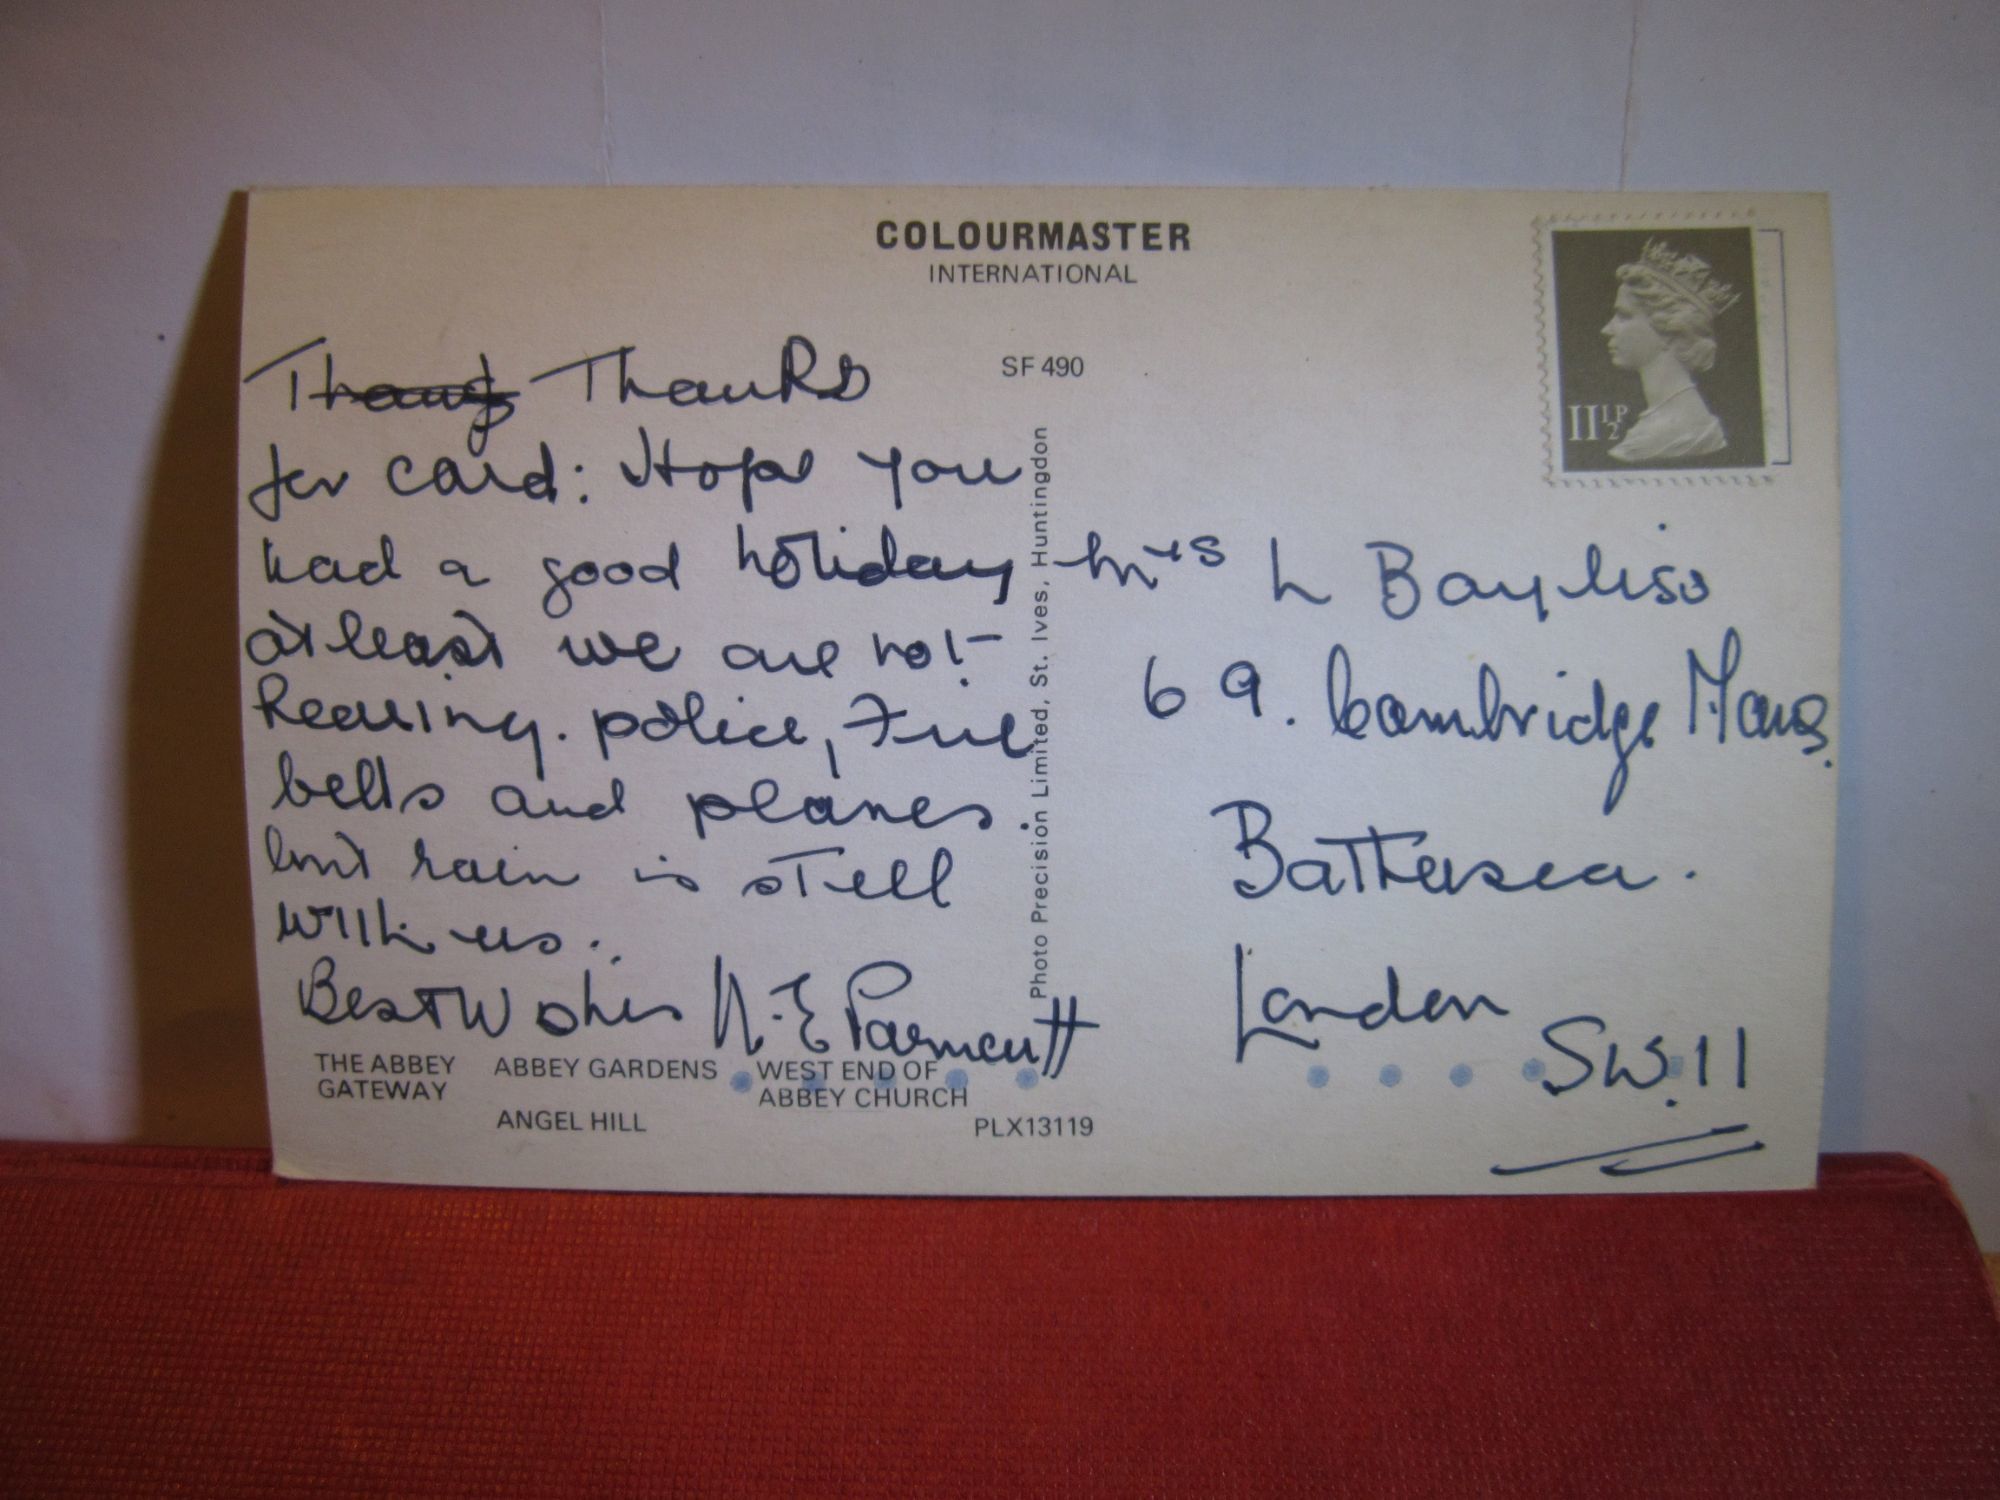 COLOURMASTER
INTERNATIONAL
SF 490
11½P
Thanks
for card: Hope you
had a good holiday
at least we are not
hearing. police, Fire
bells and planes.
but rain is still
with us.
Best Wishes N. E
Photo Precision Limited, St. Ives, Huntingdon
Mrs L Bayliss
69. Cambridge Mans.
Battersea.
London
SW.11
THE ABBEY
GATEWAY
ABBEY GARDENS
ANGEL HILL
WEST END OF
ABBEY CHURCH
PLX13119